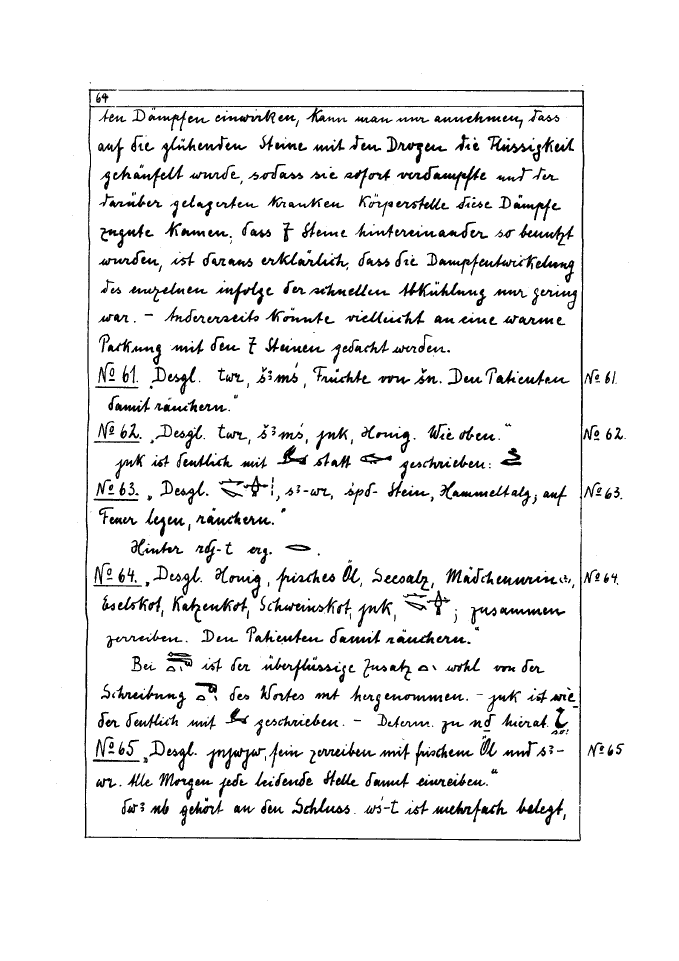 64
ten Dämpfen einwirken, kann man nur annehmen, dass
auf die glühenden Steine mit den Drogen die Flüssigkeit
geträufelt wurde, sodass sie sofort verdampfte und der
darüber gelagerten kranken Körperstelle diese Dämpfe
zugute kamen; dass 7 Steine hintereinander so benutzt
wurden, ist daraus erklärlich, dass die Dampfentwickelung
des einzelnen infolge der schnellen Abkühlung nur gering
war. – Andererseits könnte vielleicht an eine warme
Packung mit den 7 Steinen gedacht werden.
№ 61. „Desgl. twr, š³mś, Früchte von šn. Den Patienten № 61.
damit räuchern."
№ 62. „Desgl. twr, š³mś, jnk, Honig. Wie oben." № 62.
jnk ist deutlich mit statt geschrieben:
№ 63. „Desgl. , s³-wr, śpd-Stein, Hammeltalg; auf № 63.
Feuer legen, räuchern."
Hinter rdj-t erg. .
№ 64. „Desgl. Honig, frisches Öl, Seesalz, Mädchenurin, № 64.
Eselskot, Katzenkot, Schweinskot, jnk, ; zusammen
zerreiben. Den Patienten damit räuchern."
Bei ist der überflüssige Zusatz wohl von der
Schreibung des Wortes mt hergenommen. – jnk ist wie-
der deutlich mit geschrieben. – Determ. zu nḏ hierat.
so!
№ 65 „Desgl. jnjwjw, fein zerreiben mit frischem Öl und s³- № 65
wr. Alle Morgen jede leidende Stelle damit einreiben."
dw³ nb gehört an den Schluss. wś-t ist mehrfach belegt,